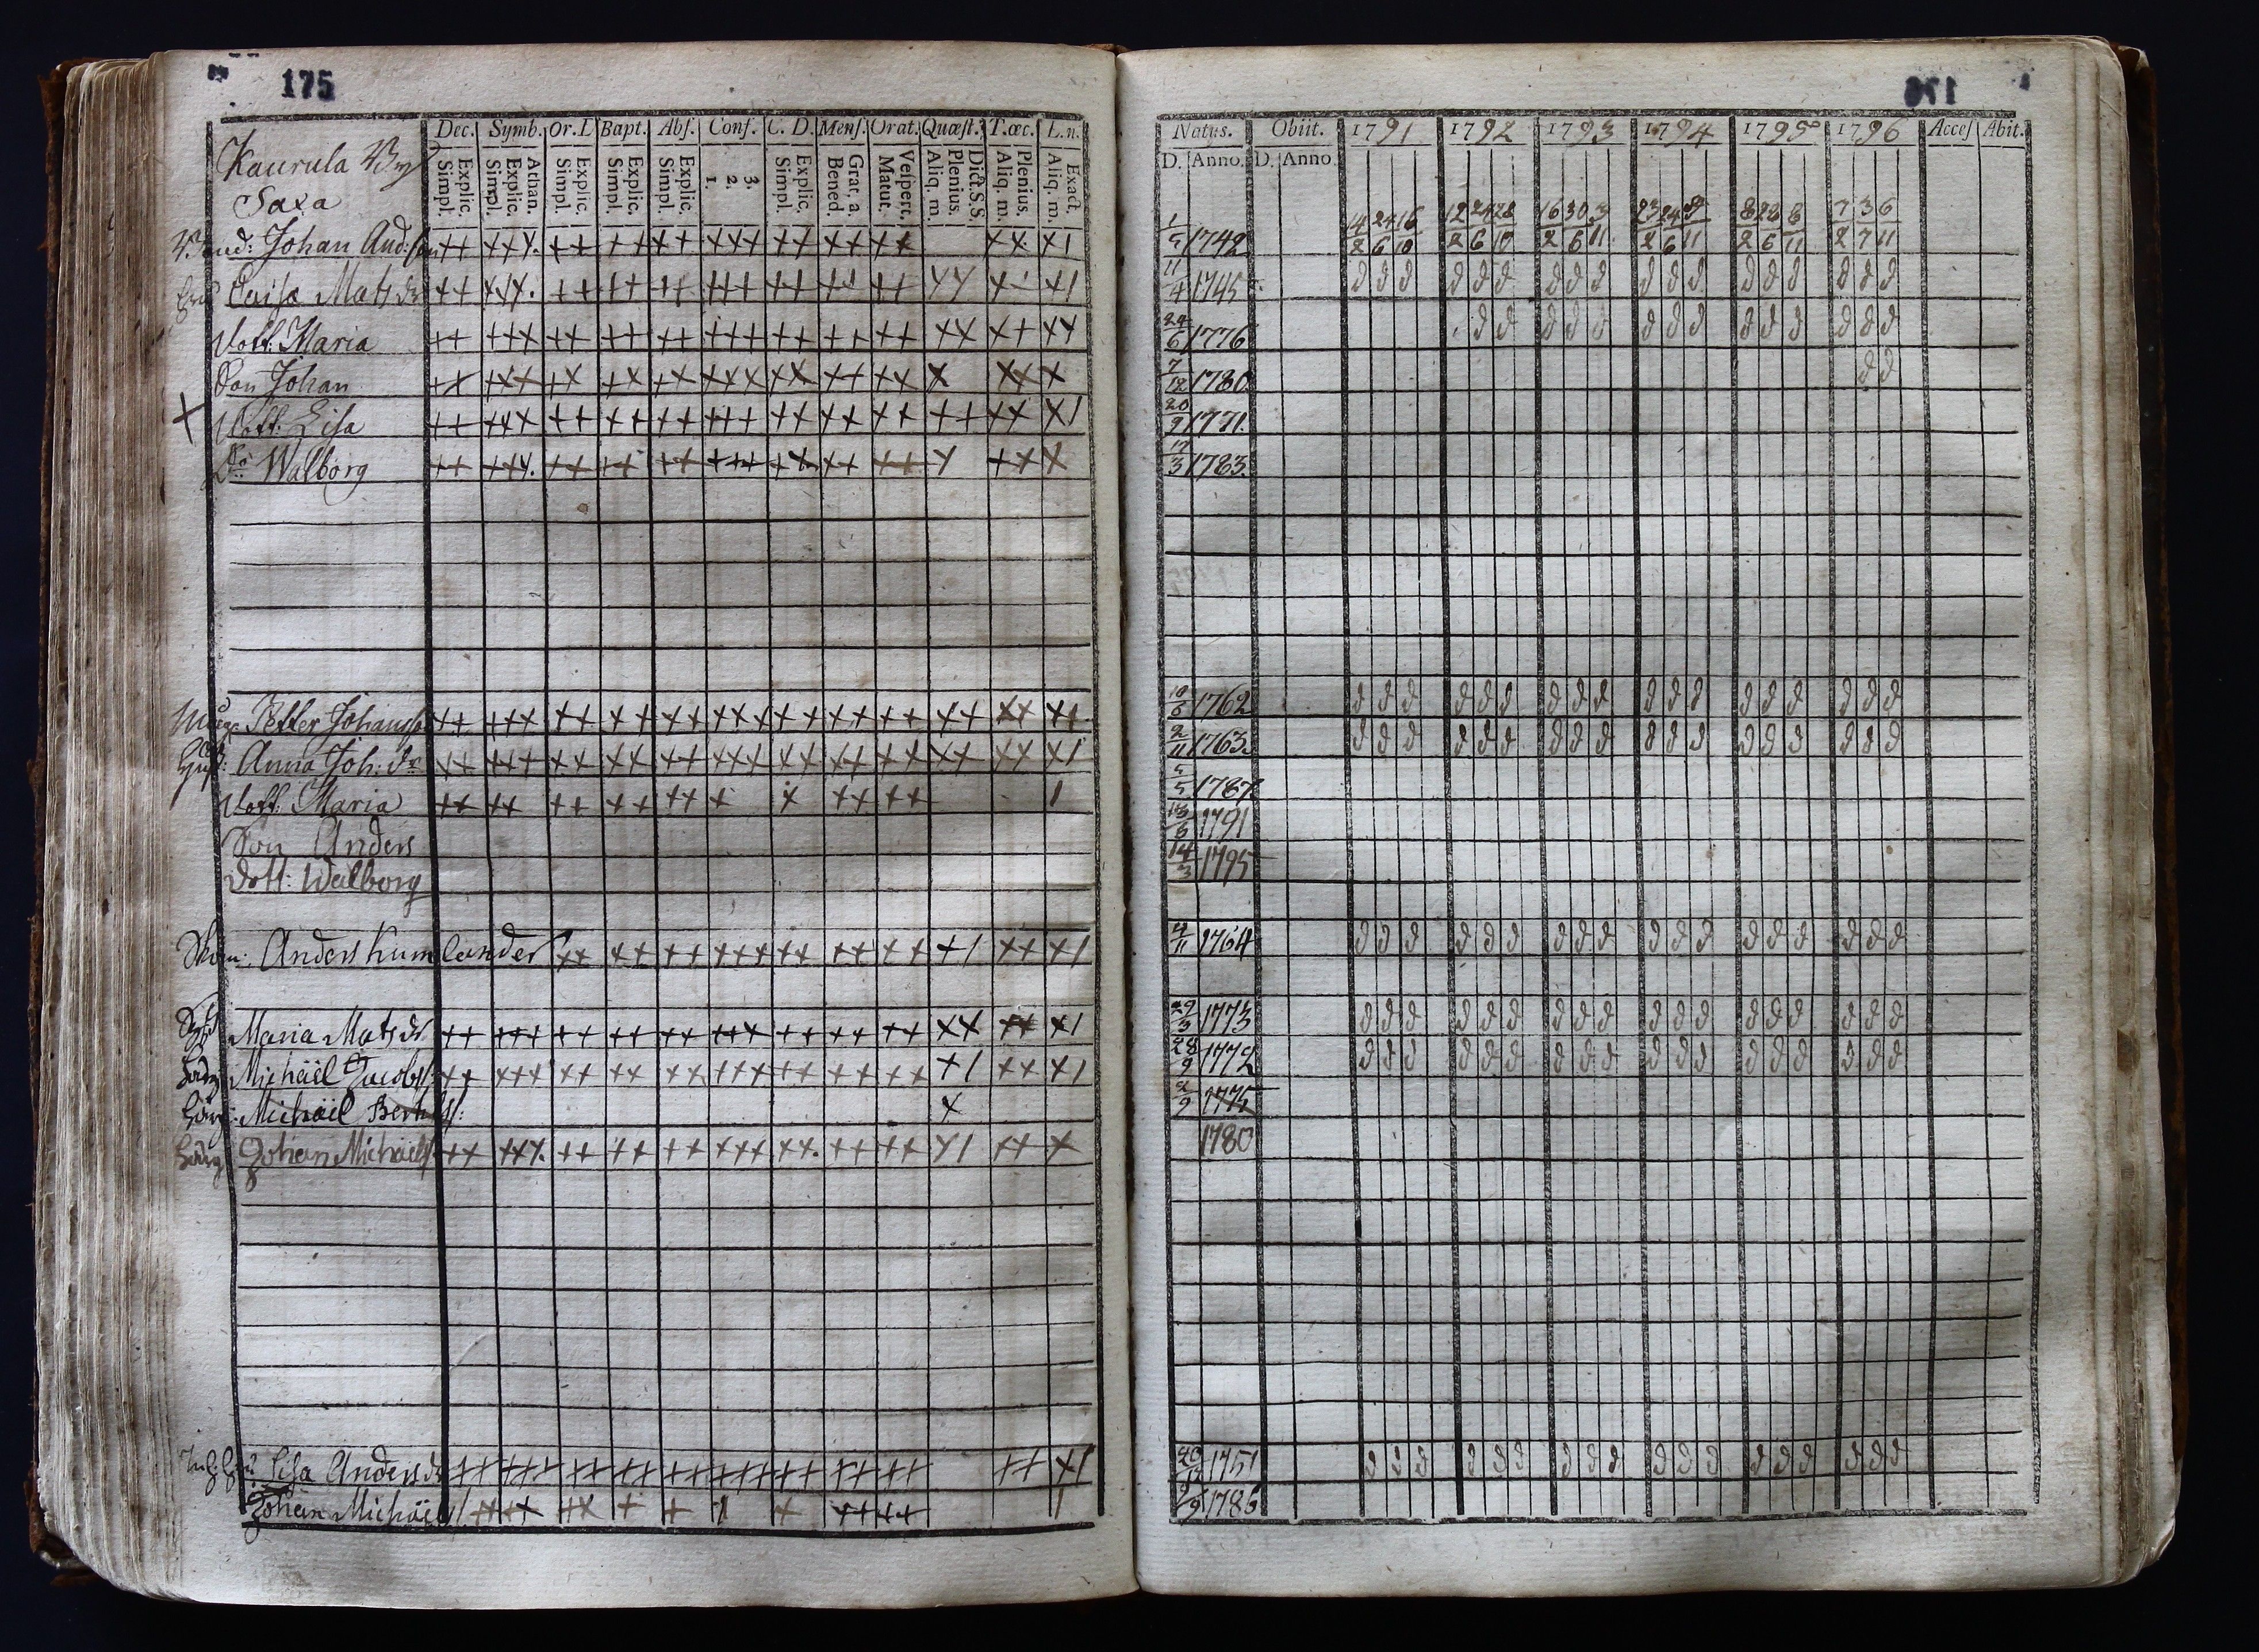 175
Dec. Symb. Or. D Bapt. Abſ. Conf. C. D. Menſ. Orat. Quæſt. T.œc. L.n.
Explic. Simpl. Athan. Explic. Simpl. Explic. Simpl. Explic. Simpl. Explic. Simpl. 3. 2. 1. Explic. Simpl. Grat. a. Bened Veſpert. Matut. Dict.S.S. Plenius. Aliq. m. Plenius. Aliq. m. Exact. Aliq. m.
Kaurula By
Saxa
Johan And:son ++ +++ ++ ++ ++ +++ ++ ++ ++ ++ +1
Caisa Mats dr ++ +++ ++ ++ ++ +++ ++ ++ ++ ++ ++ +1
dott. Maria ++ +++ ++ ++ ++ +++ ++ ++ ++ ++ ++ ++
Son Johan ++ +++ ++ ++ ++ +++ ++ ++ ++ + ++ +
+ dott. Lisa ++ +++ ++ ++ ++ +++ ++ ++ ++ ++ ++ +1
Do Walborg ++ +++ ++ ++ ++ +++ ++ ++ ++ + ++ +
Petter Johansson ++ +++ ++ ++ ++ +++ ++ ++ ++ ++ ++ +1
Hust: Anna Joh: dr ++ +++ ++ ++ ++ +++ ++ ++ ++ ++ ++ +1
dott. Maria ++ ++ ++ ++ ++ + + ++ ++ 1
Son Anders
dott: Walborg
Anders Kumlander ++ ++ ++ +++ ++ ++ ++ +1 ++ +1
Maria Mats dr ++ +++ ++ ++ ++ +++ ++ ++ ++ ++ ++ +1
Michäel Jacobss: ++ +++ ++ ++ ++ +++ ++ ++ ++ +1 ++ +1
Michäel Berthss: +
Johan Michäelss ++ +++ ++ ++ ++ +++ ++ ++ ++ +1 ++ +
Lisa Anders dr ++ +++ ++ ++ ++ +++ ++ ++ ++ ++ +1
Johan Michäelss ++++ ++ + + 1 + ++ ++ 1
Natus. Obiit. 1791 1792 1793 1794 1795 1796 Acceſ Abit.
D. Anno. D. Anno
14/2 24/6 16/10 12/2 24/6 28/10 16/2 30/6 3/11 23/2 24/6 9/11 8/2 28/6 8/11 7/2 3/7 6/11
1742
11/4 1745 d d d d d d d d d d d d d d d d d d
24/6 1776 d d d d d d d d d d d d d d
7/12 1780 d d
20/9 1771
17/3 1783
10/6 1762 d d d d d d d d d d d d d d d d d d
2/11 1763 d d d d d d d d d d d d d d d d d d
5/5 1787
1791
14/3 1795
4/11 1764 d d d d d d d d d d d d d d d d d d
29/3 1773 d d d d d d d d d d d d d d d d d d
28/9 1772 d d d d d d d d d d d d d d d d d d
1774
1780
1751 d d d d d d d d d d d d d d d d d d
9/9 1786